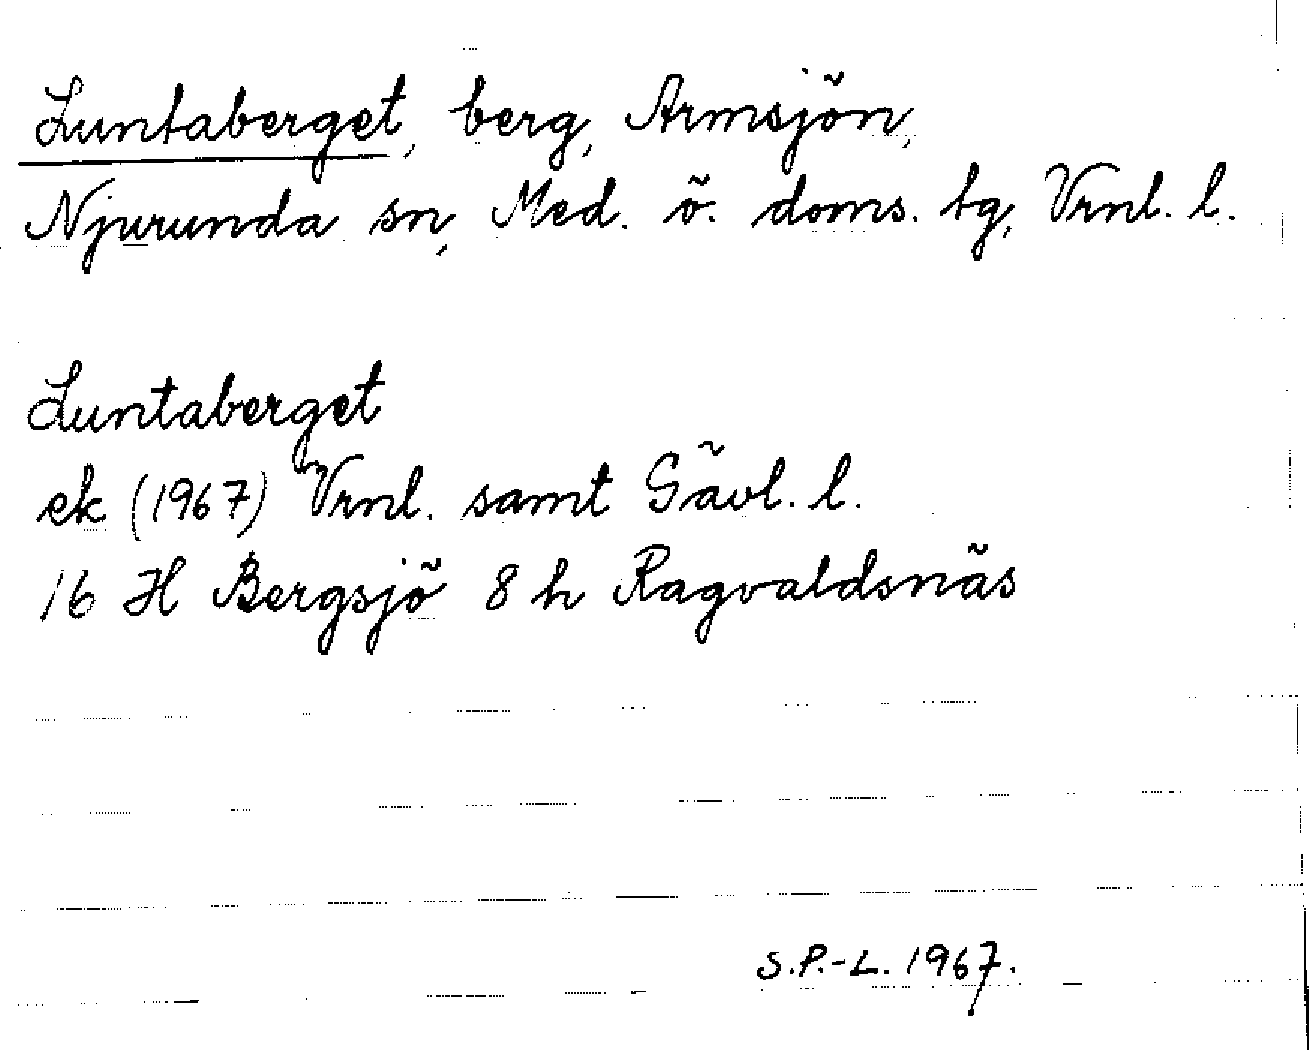 Luntaberget, berg, Armsjön,
Njurunda sn, Med. ö. doms. tg, Vrnl. l.
Luntaberget
ek (1967) Vrnl. samt Gävl. l.
16 H Bergsjö 8 h Ragvaldsnäs
S.P.-L. 1967.